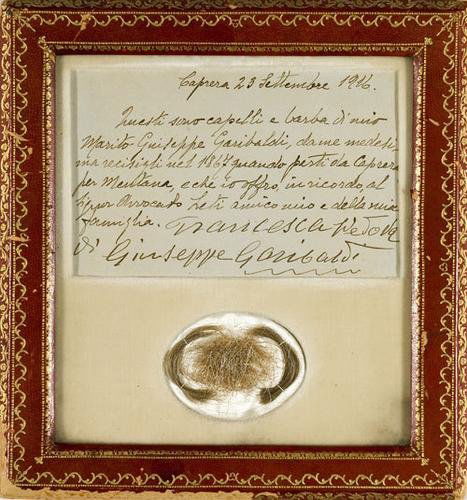 Caprera 23 Settembre 1916.
Questi sono capelli e barba di mio
Marito Giuseppe Garibaldi, da me medesi-
ma recisigli nel 1867 quando partì da Caprera
per Mentana, e che io offro, in ricordo, al
Signor Avvocato amico mio e della mia
famiglia. Francesca Vedova
di Giuseppe Garibaldi